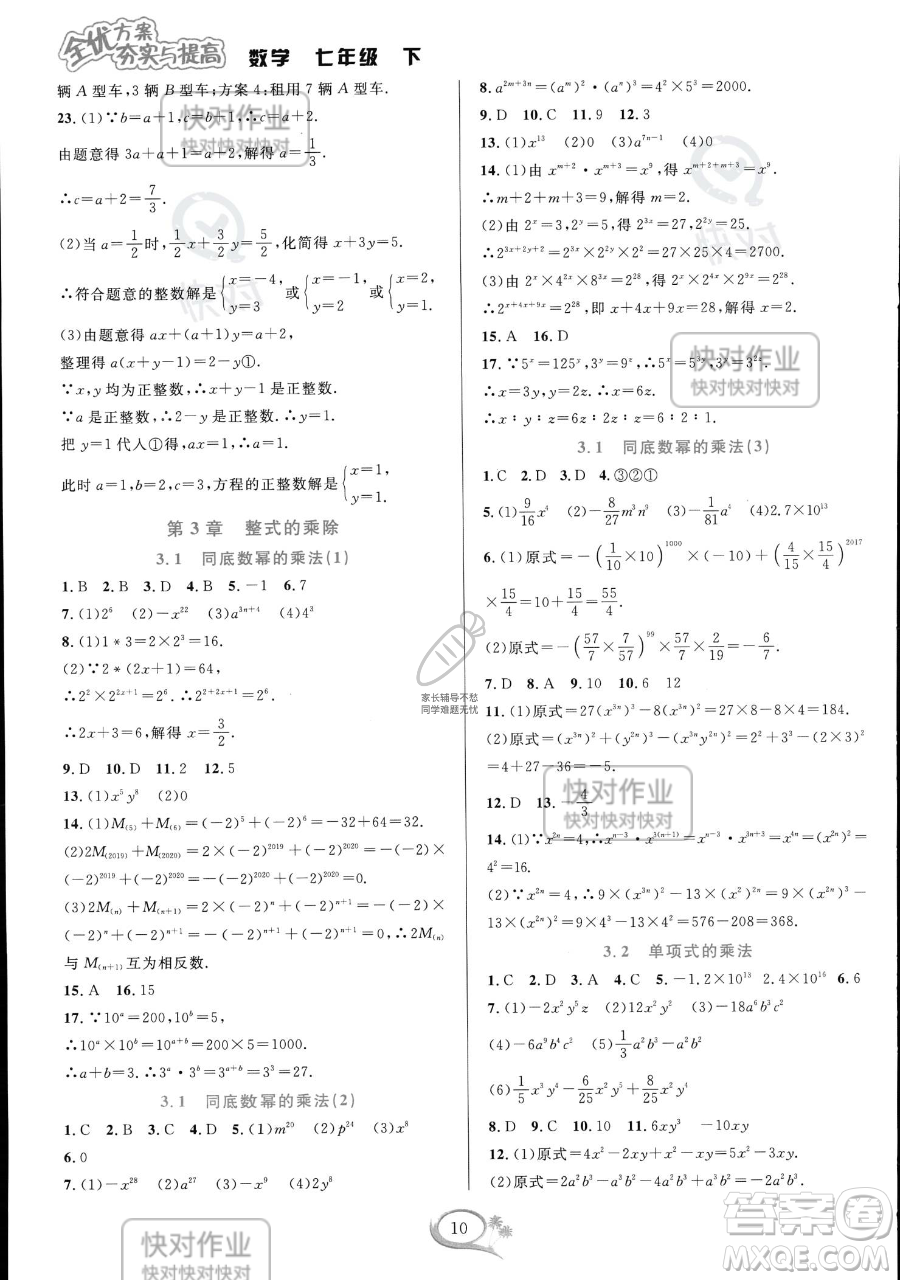 全优方案
夯实与提高 数学 七年级 下
辆 A 型车,3 辆 B 型车;方案 4:租用 7 辆 A 型车.
23.(1)∵b=a+1,c=b+1,∴c=a+2.
由题意得 3a+a+1=a+2,解得 a=1/3.
∴c=a+2=7/3.
(2)当 a=1/2时,1/2x+3/2y=5/2,化简得 x+3y=5.
∴符合题意的整数解是{x=-4, y=3 或{x=-1, y=2 或{x=2, y=1.
(3)由题意得 ax+(a+1)y=a+2,
整理得 a(x+y-1)=2-y①.
∵x,y 均为正整数,∴x+y-1 是正整数.
∵a 是正整数,∴2-y 是正整数.∴y=1.
把 y=1 代人①得,ax=1.∴a=1.
此时 a=1,b=2,c=3,方程的正整数解是{x=1, y=1.
第 3 章 整式的乘除
3.1 同底数幂的乘法(1)
1.B 2.B 3.D 4.B 5.-1 6.7
7.(1)2⁶ (2)-x²² (3)a³ⁿ⁺⁴ (4)4³
8.(1)1*3=2×2³=16.
(2)∵2*(2x+1)=64,
∴2²×2²ˣ⁺¹=2⁶.∴2²⁺²ˣ⁺¹=2⁶.
∴2x+3=6,解得 x=3/2.
9.D 10.D 11.2 12.5
13.(1)x⁵y⁸ (2)0
14.(1)M₍₅₎+M₍₆₎=(-2)⁵+(-2)⁶=-32+64=32.
(2)2M₍₂₀₁₉₎+M₍₂₀₂₀₎=2×(-2)²⁰¹⁹+(-2)²⁰²⁰=-(-2)×
(-2)²⁰¹⁹+(-2)²⁰²⁰=-(-2)²⁰²⁰+(-2)²⁰²⁰=0.
(3)2M₍ₙ₎+M₍ₙ₊₁₎=2×(-2)ⁿ+(-2)ⁿ⁺¹=-(-2)×
(-2)ⁿ+(-2)ⁿ⁺¹=-(-2)ⁿ⁺¹+(-2)ⁿ⁺¹=0.∴2M₍ₙ₎
与 M₍ₙ₊₁₎互为相反数.
15.A 16.15
17.∵10ᵃ=200,10ᵇ=5,
∴10ᵃ×10ᵇ=10ᵃ⁺ᵇ=200×5=1000.
∴a+b=3.∴3ᵃ·3ᵇ=3ᵃ⁺ᵇ=3³=27.
3.1 同底数幂的乘法(2)
1.C 2.B 3.D 4.B 5.(1)m²⁰ (2)p²⁴ (3)x⁶
6.0
7.(1)-x²⁸ (2)-a¹⁵ (3)-x⁹ (4)2y⁸
8.a²ᵐ⁺³ⁿ=(aᵐ)²·(aⁿ)³=4²×5³=2000.
9.D 10.C 11.9 12.3
13.(1)x¹³ (2)0 (3)a⁷ⁿ⁻¹ (4)0
14.(1)由 xᵐ⁺²·xᵐ⁺³=x⁹,得 xᵐ⁺²⁺ᵐ⁺³=x⁹,
∴m+2+m+3=9,解得 m=2.
(2)由 2ˣ=3,2ʸ=5,得 2³ˣ=27,2²ʸ=25.
∴2³ˣ⁺²ʸ⁺²=2³ˣ×2²ʸ×2²=27×25×4=2700.
(3)由 2ˣ×4²ˣ×8³ˣ=2²⁸,得 2ˣ×2⁴ˣ×2⁹ˣ=2²⁸.
∴2ˣ⁺⁴ˣ⁺⁹ˣ=2²⁸,即 x+4x+9x=28,解得 x=2.
15.A 16.D
17.∵5ˣ=125ʸ,3ʸ=9ᶻ,∴5ˣ=5³ʸ,3ʸ=3²ᶻ.
∴x=3y,y=2z.∴x=6z.
∴x∶y∶z=6z∶2z∶z=6∶2∶1.
3.1 同底数幂的乘法(3)
1.C 2.D 3.D 4.③②①
5.(1)9/16x⁴ (2)-8/27m³n⁹ (3)-1/81a⁴ (4)2.7×10¹³
6.(1)原式=-(1/10×10)¹⁰⁰⁰×(-10)+(4/15×15/4)²⁰¹⁷
×15/4=10+15/4=55/4.
(2)原式=-(57/7×7/57)⁹⁹×57/7×2/19=-6/7.
7.D 8.A 9.D 10.6 12
11.(1)原式=27(x³ⁿ)²-8(x³ⁿ)²=27×8-8×4=184.
(2)原式=(x³ⁿ)²+(y²ⁿ)³-x³ⁿ·y²ⁿ·y²ⁿ=2²+3³-2×3²×2
=4+27-36=-5.
12.D 13.-4/3
14.(1)∵x²ⁿ=4,∴xⁿ⁻³·x³⁽ⁿ⁺¹⁾=xⁿ⁻³·x³ⁿ⁺³=x⁴ⁿ=(x²ⁿ)²=
4²=16.
(2)∵x²ⁿ=4,∴9(x³ⁿ)²-13(x²)²ⁿ=9x⁶ⁿ-13x⁴ⁿ=9(x²ⁿ)³-
13×(x²ⁿ)²=9×4³-13×4²=576-208=368.
3.2 单项式的乘法
1.C 2.D 3.A 4.C 5.-1.2×10¹³ 2.4×10¹⁵ 6.6
7.(1)-2x²y⁵z (2)12x³y³ (3)-18a⁶b³c²
(4)-6a⁹b⁹c (5)1/3a²b³-2ab²
(6)1/5x³y⁴-4/15x²y⁵+8/25x²y⁴
8.B 9.C 10.B 11.6xy³ -10xy
12.(1)原式=4x²-2xy-4x²+12xy=10xy.
10
家长辅导不愁
同学难题无忧
快对作业
快对快对快对
答案圈
MXQE.COM